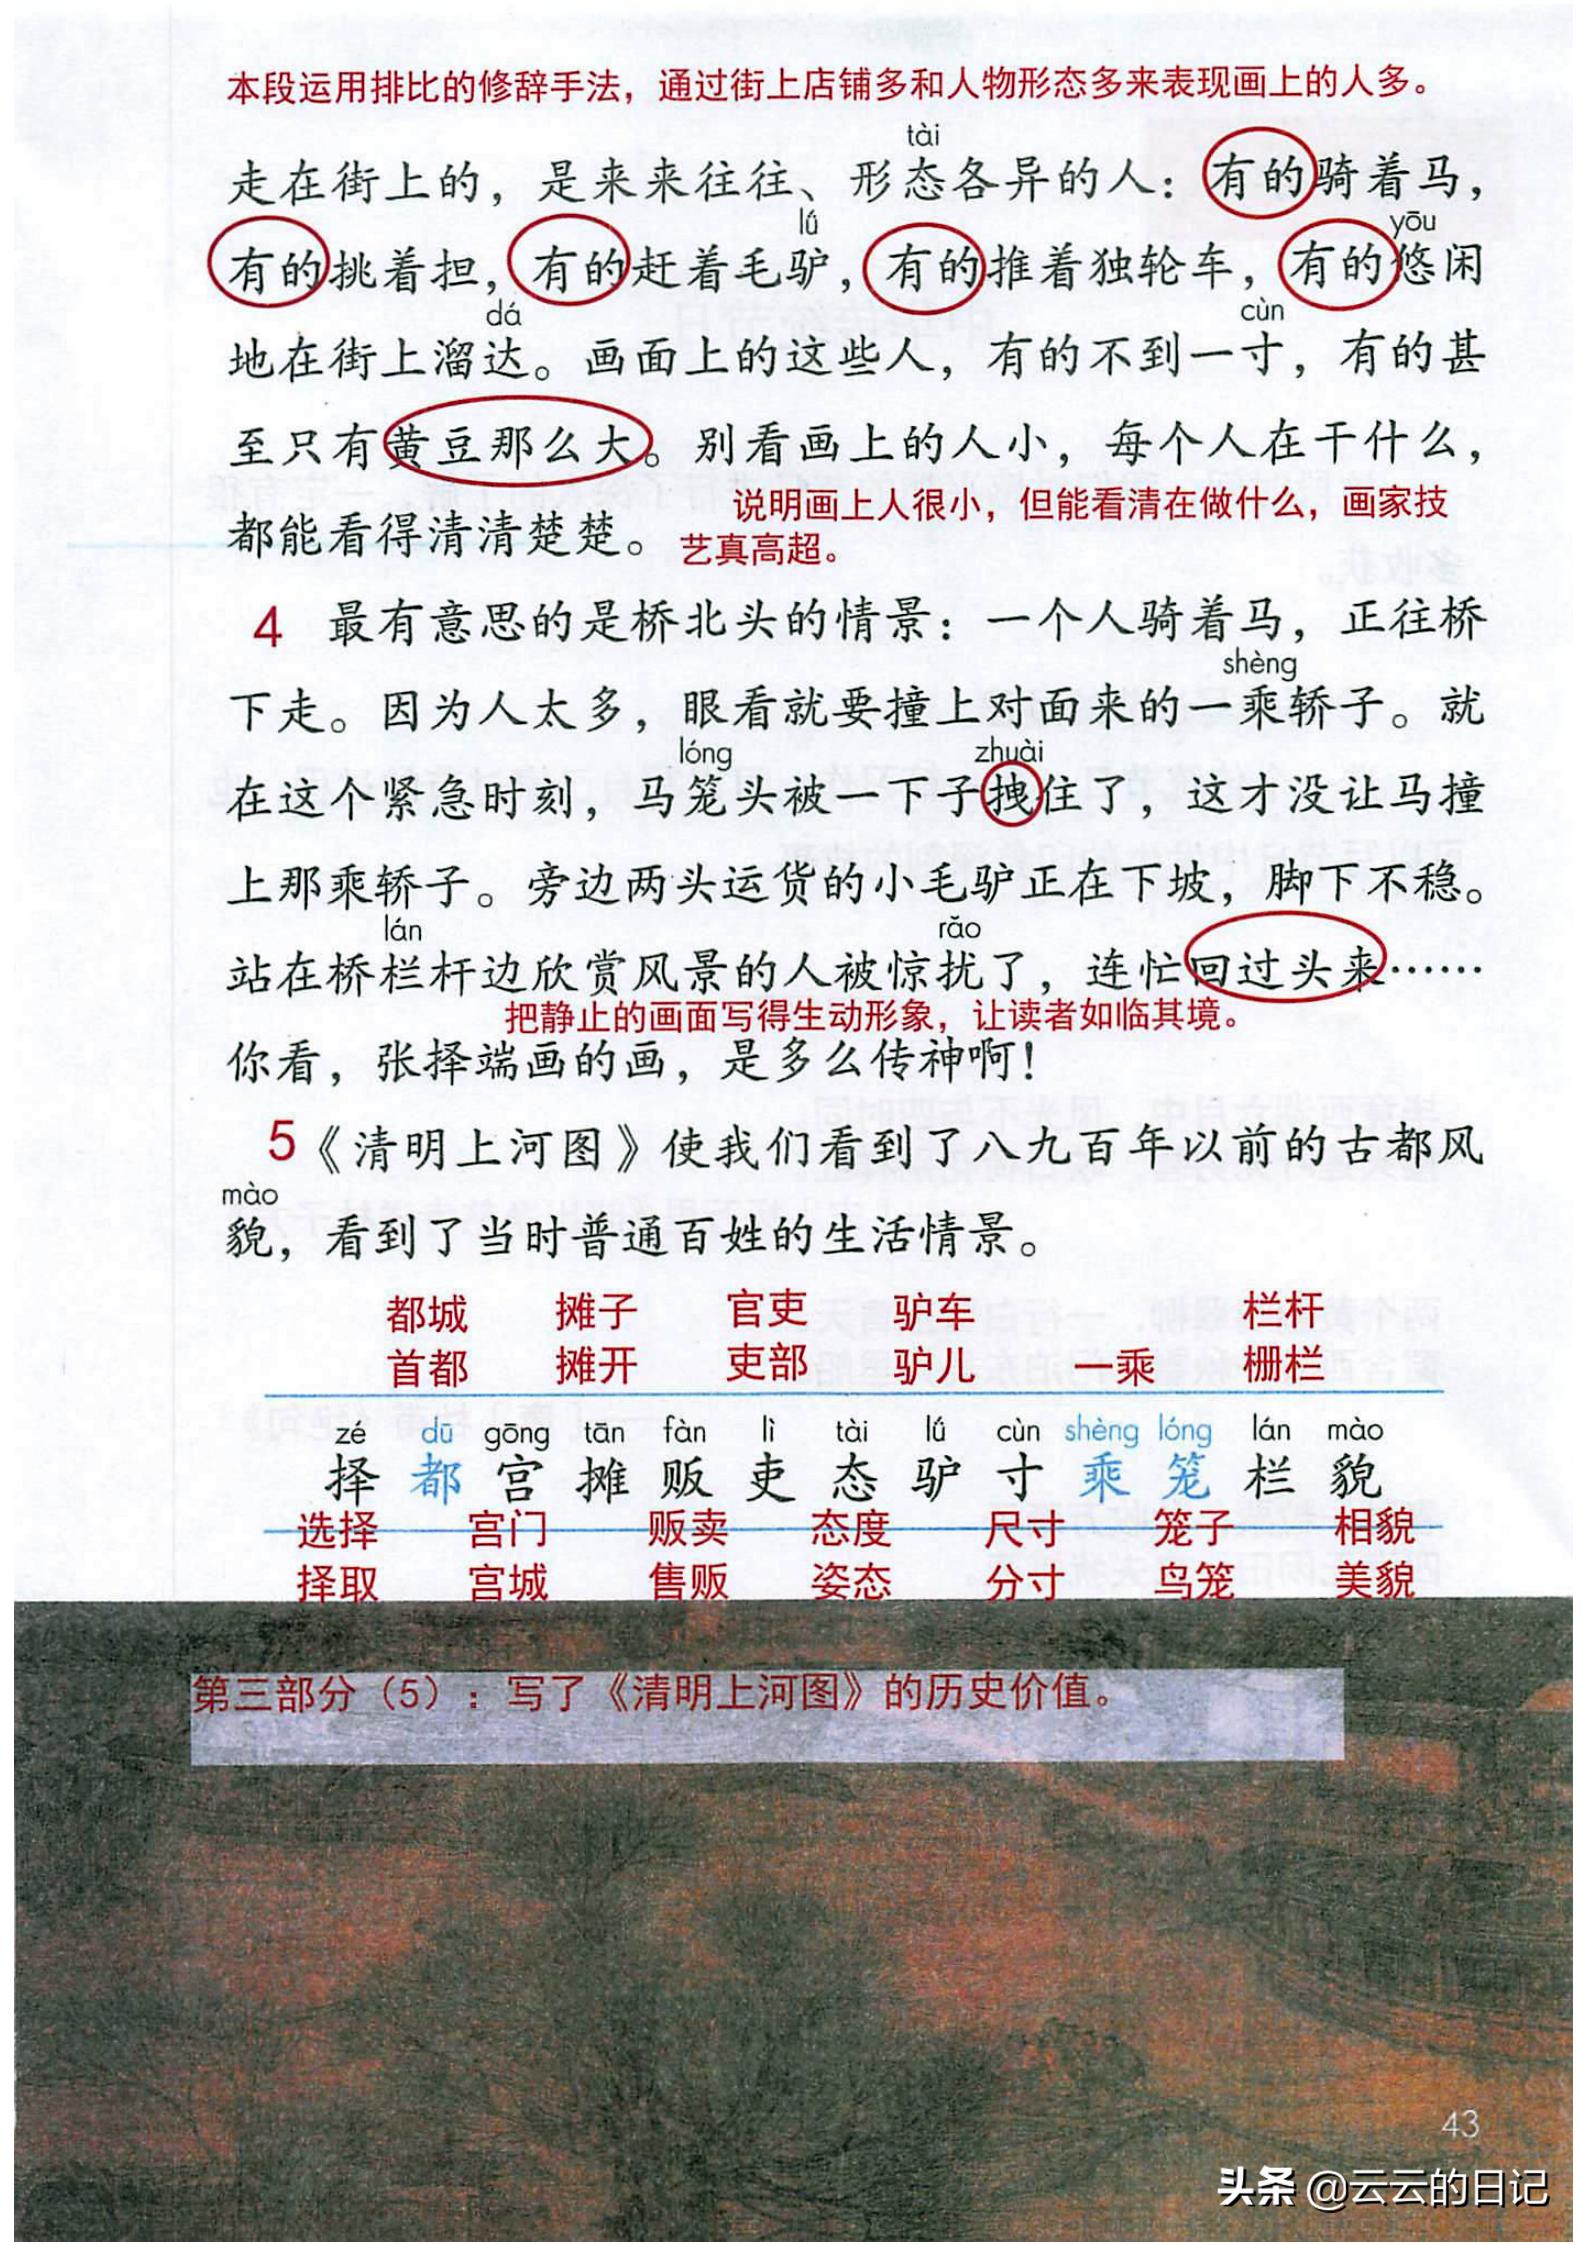 本段运用排比的修辞手法，通过街上店铺多和人物形态多来表现画上的人多。
tài
走在街上的，是来来往往、形态各异的人：有的骑着马，
lǘ yōu
有的挑着担，有的赶着毛驴，有的推着独轮车，有的悠闲
dá cùn
地在街上溜达。画面上的这些人，有的不到一寸，有的甚
至只有黄豆那么大。别看画上的人小，每个人在干什么，
说明画上人很小，但能看清在做什么，画家技
都能看得清清楚楚。
艺真高超。
4 最有意思的是桥北头的情景：一个人骑着马，正往桥
shèng
下走。因为人太多，眼看就要撞上对面来的一乘轿子。就
lóng zhuài
在这个紧急时刻，马笼头被一下子拽住了，这才没让马撞
上那乘轿子。旁边两头运货的小毛驴正在下坡，脚下不稳。
lán rǎo
站在桥栏杆边欣赏风景的人被惊扰了，连忙回过头来……
把静止的画面写得生动形象，让读者如临其境。
你看，张择端画的画，是多么传神啊！
5《清明上河图》使我们看到了八九百年以前的古都风
mào
貌，看到了当时普通百姓的生活情景。
都城 摊子 官吏 驴车 栏杆
首都 摊开 吏部 驴儿 一乘 栅栏
zé dū gōng tān fàn lì tài lǘ cùn shèng lóng lán mào
择 都 宫 摊 贩 吏 态 驴 寸 乘 笼 栏 貌
选择 宫门 贩卖 态度 尺寸 笼子 相貌
择取 宫城 售贩 姿态 分寸 鸟笼 美貌
第三部分（5）：写了《清明上河图》的历史价值。
43
头条 @云云的日记